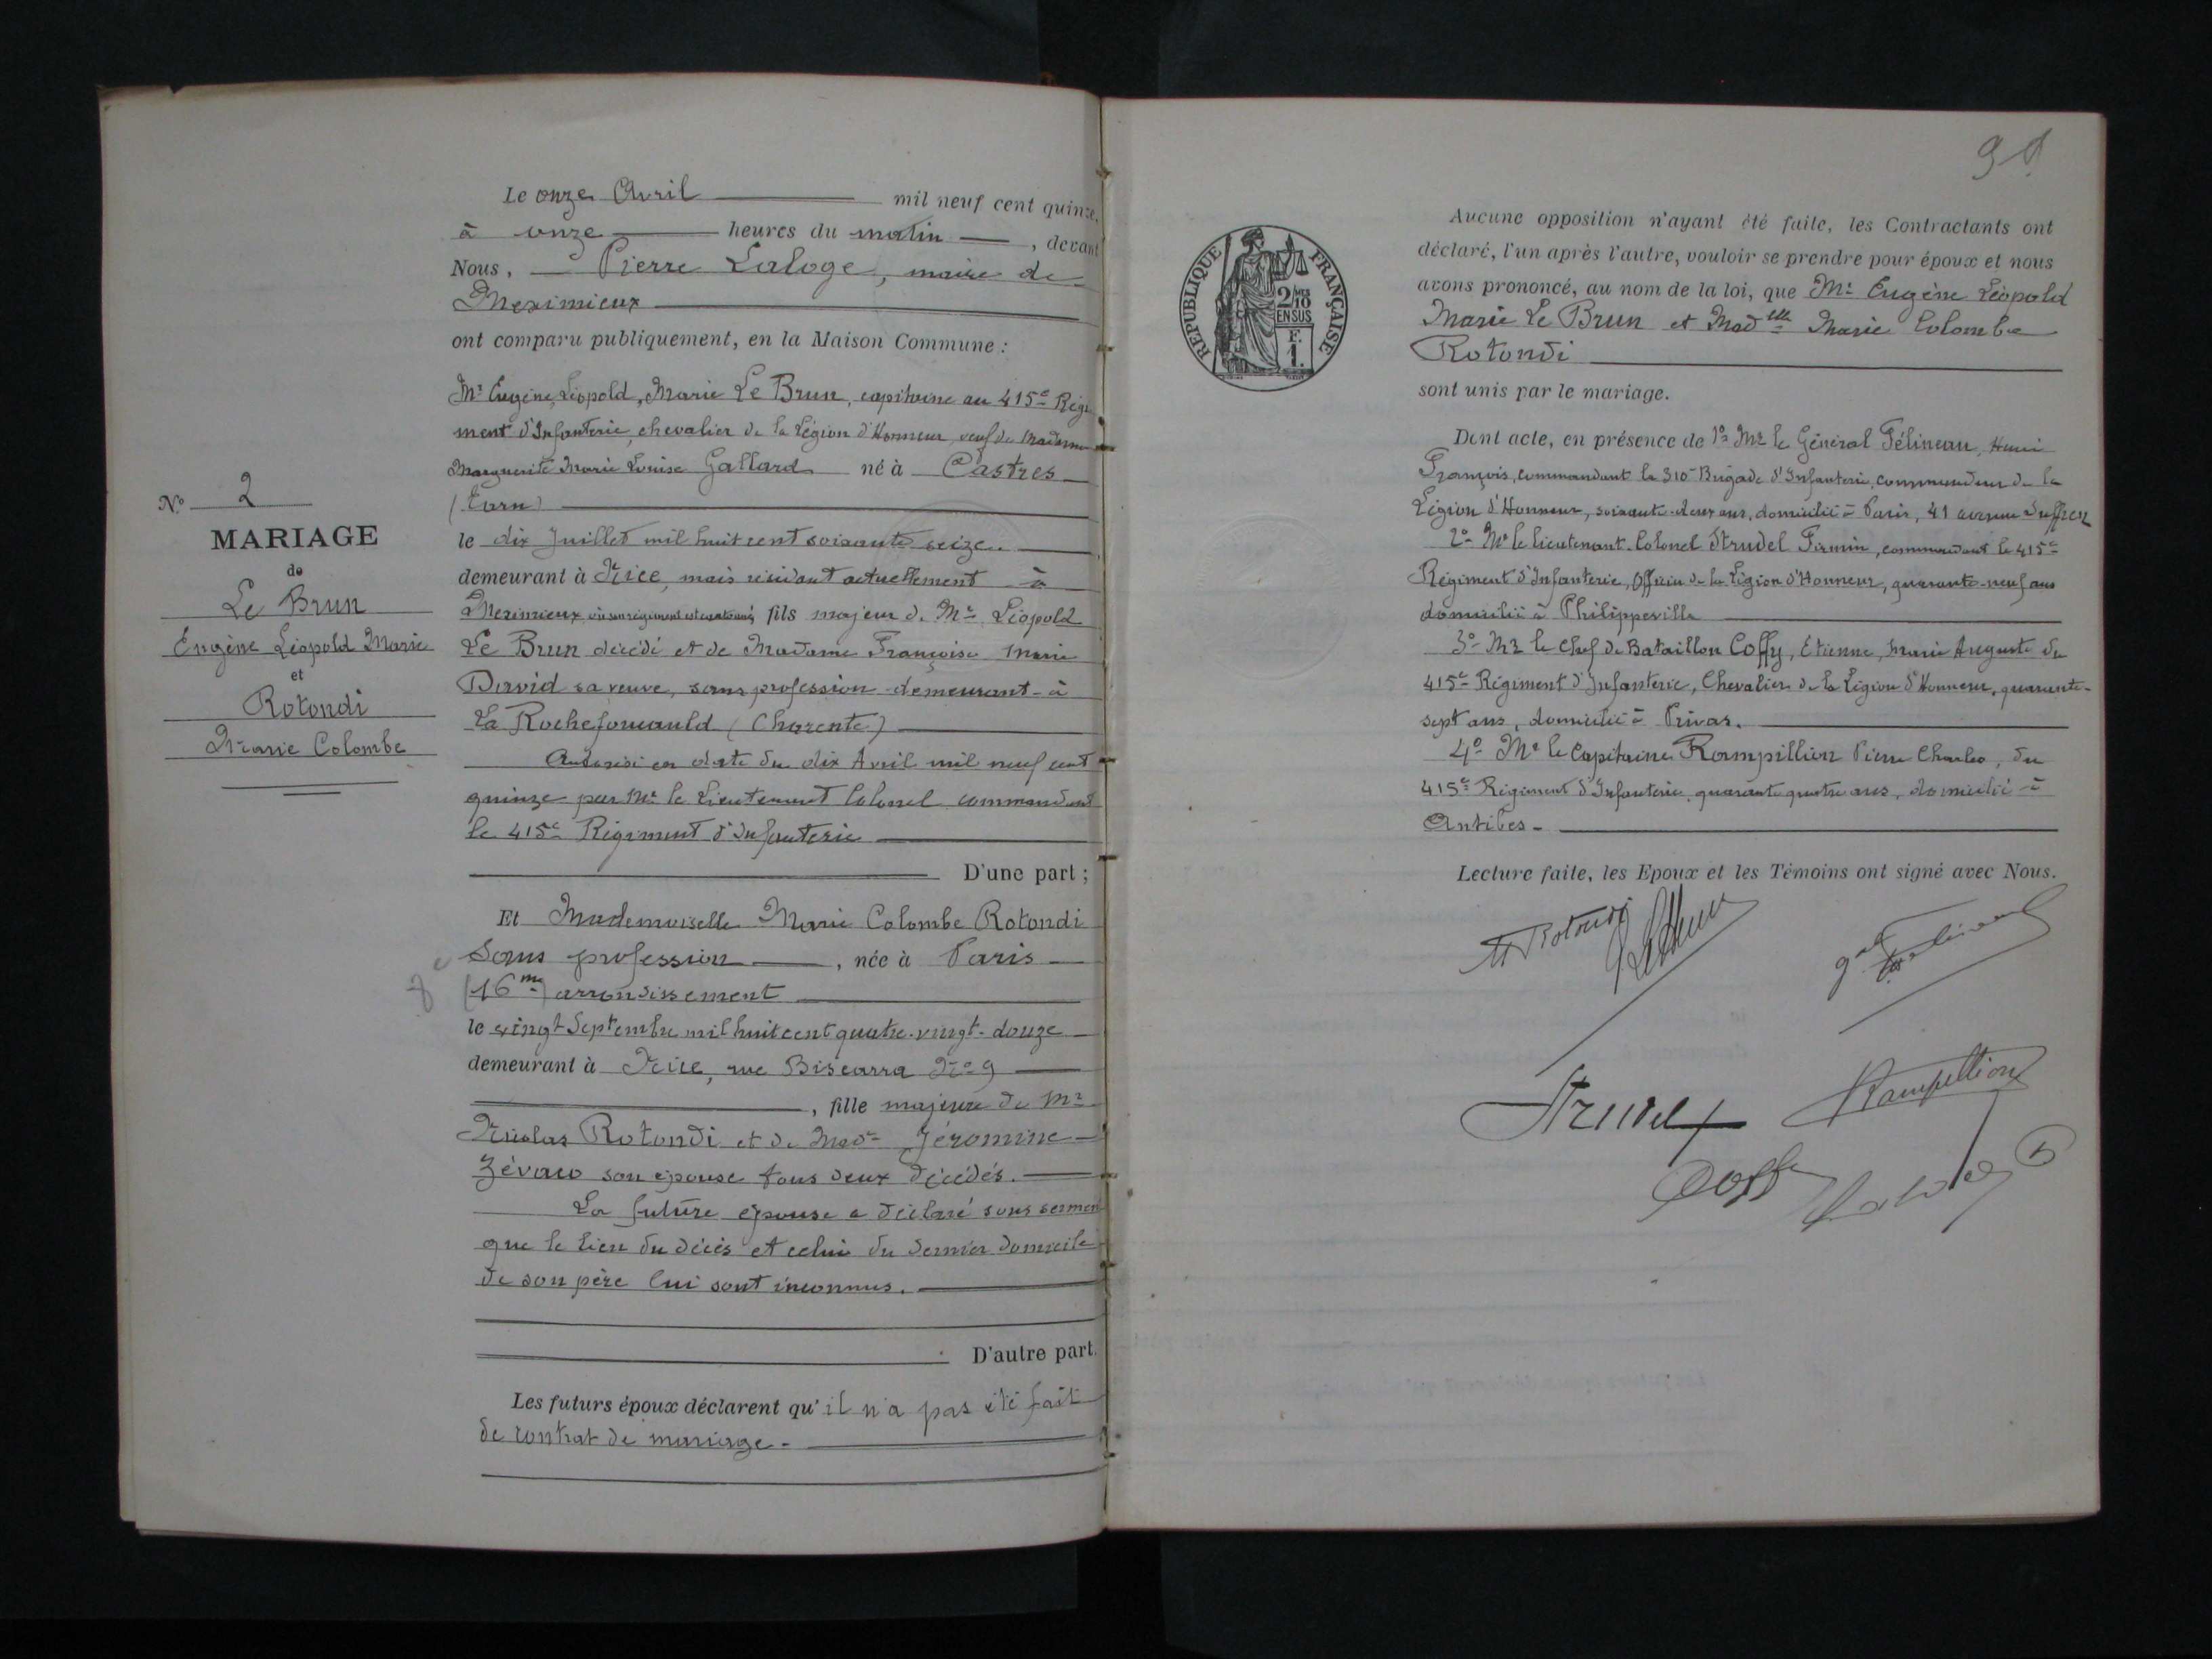 Le onze Avril mil neuf cent quinze,
à onze heures du matin, devant
Nous, Pierre Laloge, maire de
Meximieux
ont comparu publiquement, en la Maison Commune :
Mr Eugène, Léopold, Marie Le Brun, capitaine au 415e Régi
ment d'Infanterie, chevalier de la Légion d'Honneur, veuf de Madame
Marguerite Marie Louise Gallard né à Castres
(Tarn)
le dix Juillet mil huit cent soixante seize
demeurant à Nice, mais résidant actuellement à
Meximieux où son régiment est cantonné, fils majeur de Mr Léopold
Le Brun décédé et de Madame Françoise Marie
David sa veuve, sans profession demeurant à
La Rochefoucauld (Charente)
Autorisé en date du dix Avril mil neuf cent
quinze par Mr le Lieutenant Colonel commandant
le 415e Régiment d'Infanterie
D'une part ;
No 2
MARIAGE
de
Le Brun
Eugène Léopold Marie
et
Rotondi
Marie Colombe
Et Mademoiselle Marie Colombe Rotondi
Sans profession, née à Paris
8e (16me) arrondissement
le vingt Septembre mil huit cent quatre-vingt-douze
demeurant à Nice, rue Biscarra No 9
, fille majeure de Mr
Nicolas Rotondi et de Made Jéromine
Zévaco son épouse tous deux décédés.
La future épouse a déclaré sous serment
que le lieu du décès et celui du dernier domicile
de son père lui sont inconnus.
D'autre part.
Les futurs époux déclarent qu'il n'a pas été fait
de contrat de mariage.
RÉPUBLIQUE FRANÇAISE
2/10
EN SUS
F.
1.
Aucune opposition n'ayant été faite, les Contractants ont
déclaré, l'un après l'autre, vouloir se prendre pour époux et nous
avons prononcé, au nom de la loi, que Mr Eugène Léopold
Marie Le Brun et Madelle Marie Colombe
Rotondi
sont unis par le mariage.
Dont acte, en présence de 1o Mr le Général Félineau, Henri
François, commandant la 310e Brigade d'Infanterie, commandeur de la
Légion d'Honneur, soixante-deux ans, domicilié à Paris, 41 avenue Suffren
2o Mr le lieutenant-Colonel Strudel Firmin, commandant le 415e
Régiment d'Infanterie, Officier de la Légion d'Honneur, quarante-neuf ans
domicilié à Philippeville
3o Mr le Chef de Bataillon Coffy, Etienne, Marie Auguste du
415e Régiment d'Infanterie, Chevalier de la Légion d'Honneur, quarante-
sept ans, domicilié à Privas.
4o Mr le Capitaine Rampillion Pierre Charles, du
415e Régiment d'Infanterie, quarante quatre ans, domicilié à
Antibes.
Lecture faite, les Epoux et les Témoins ont signé avec Nous.
M Rotondi
Le Brun
gal Félineau
Strudel
Rampillion
Coffy
Laloge